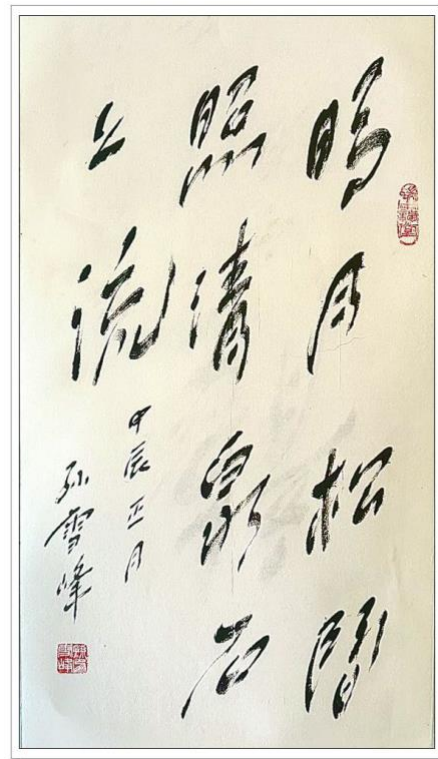 明月松間
照清泉石
上流
甲辰正月
孙雪峰